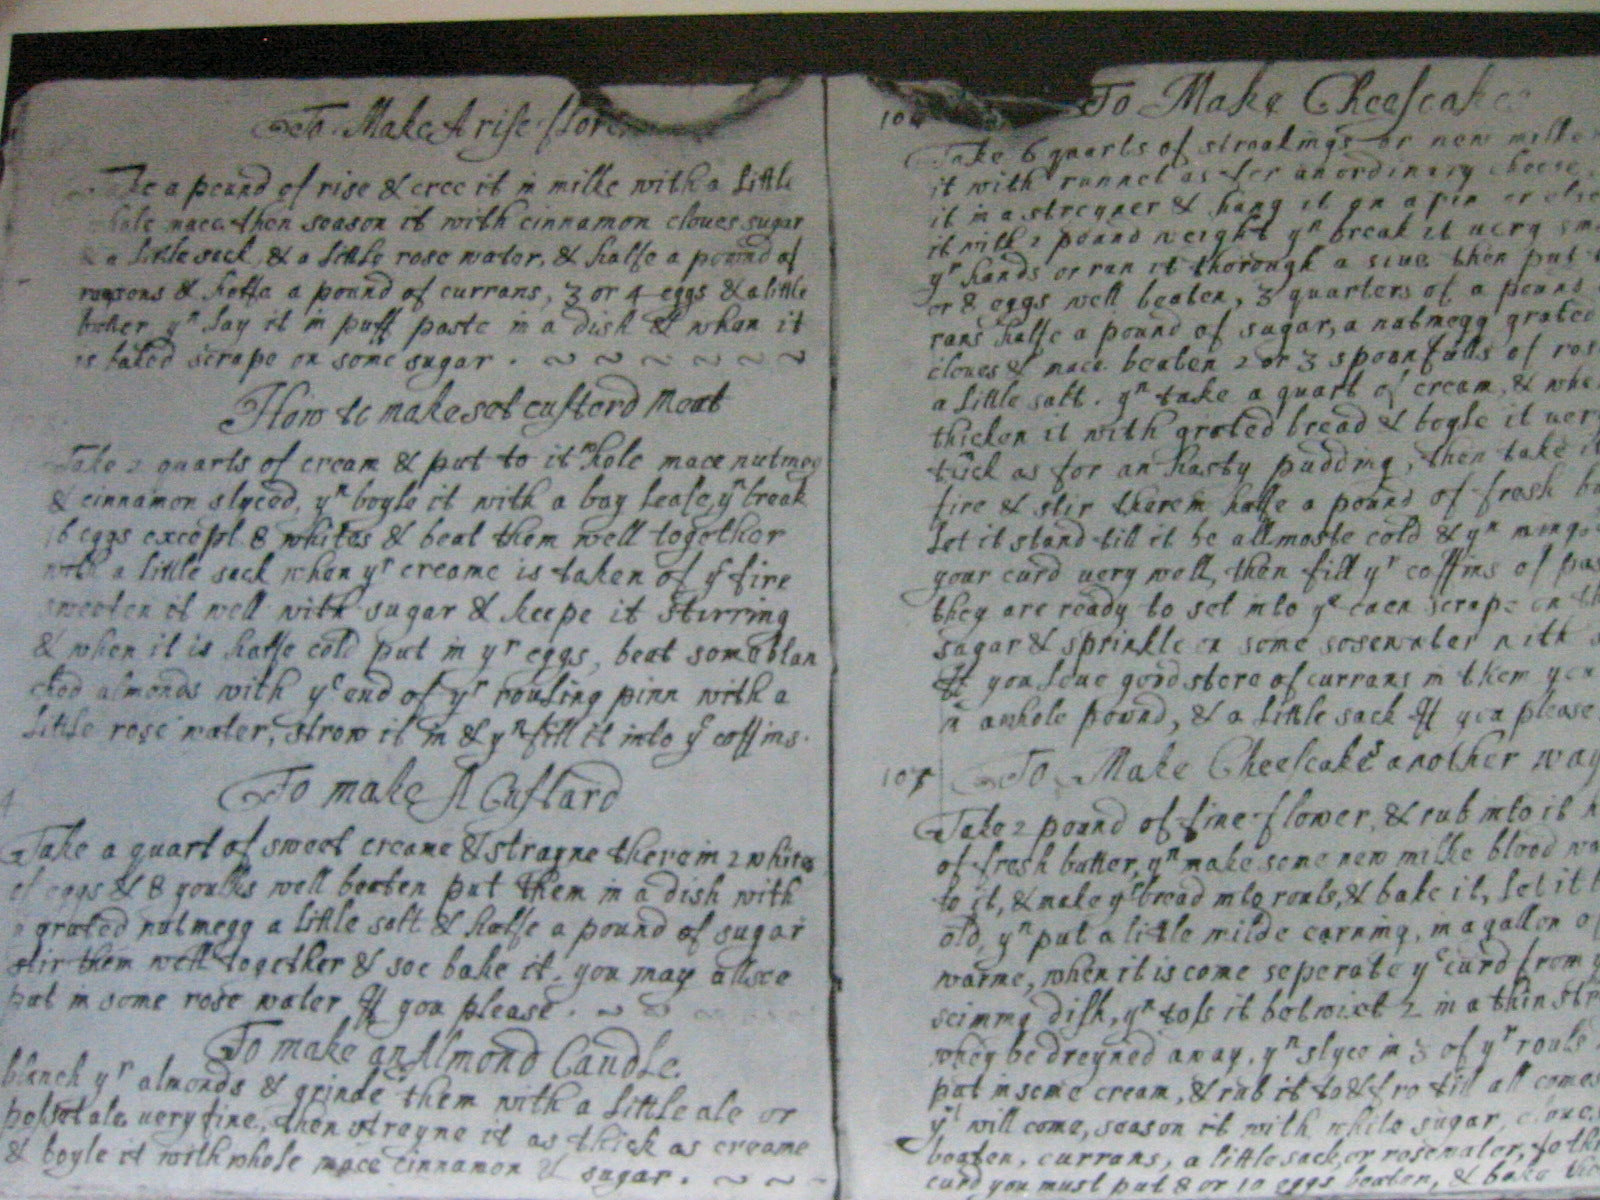 To Make A rise flore
Take a pound of rise & cree it in milke with a little
whole mace then season it with cinnamon cloues sugar
& a little sack, & a little rose water, & halfe a pound of
raysons & halfe a pound of currans, 3 or 4 eggs & a little
butter yn lay it in puff paste in a dish & when it
is baked scrape on some sugar . ~ ~ ~ ~ ~ ~
How to make set custerd meat
Take 2 quarts of cream & put to it whole mace nutmeg
& cinnamon slyced, yn boyle it with a bay leafe, yn break
16 eggs except 8 whites & beat them well together
with a little sack when yr creame is taken of ye fire
sweeten it well with sugar & keepe it stirring
& when it is halfe cold put in yr eggs, beat some blan
ched almonds with ye end of yr rouling pinn with a
little rose water, strow it in & yn fill it into ye coffins.
To make A Custard
Take a quart of sweet creame & strayne therein 2 whites
of eggs & 8 youlks well beaten put them in a dish with
a grated nutmegg a little salt & halfe a pound of sugar
stir them well together & soe bake it. you may allsoe
put in some rose water If you please . ~
To make an Almond Caudle.
blanch yr almonds & grinde them with a little ale or
posset ale very fine, then strayne it as thick as creame
& boyle it with whole mace cinnamon & sugar . ~ ~ ~
To Make Cheescakes
Take 6 quarts of stroakings or new milke
it with runnet as for an ordinary cheese
it in a streyner & hang it on a pin or else
it with 2 pound weight yn break it uery sma
yr hands or run it thorough a siue then put
or 8 eggs well beaten, 3 quarters of a pound
rans halfe a pound of sugar, a nutmegg grated
cloues & mace beaten 2 or 3 spoonfulls of ros
a little salt. yn take a quart of cream, & whe
thicken it with grated bread & boyle it uery
thick as for an hasty pudding, then take it
fire & stir therein halfe a pound of fresh bu
Let it stand till it be allmoste cold & yn
your curd uery well, then fill yr coffins of pas
they are ready to set into ye ouen scrape on th
sugar & sprinkle on some rosewater with
If you loue good store of currans in them you
in a whole pound, & a little sack If you please
107 To Make Cheescakes another way
Take 2 pound of fine flower, & rub into it
of fresh butter, yn make some new milke blood wa
to it, & make yt bread into rouls, & bake it, Let it
old, yn put a little milde earning, in a gallon of
warme, when it is come seperate ye curd from
scimmg dish, yn toss it betwixt 2 in a thin str
whey be dreyned away, yn slyce in 3 of yr rouls
put in some cream, & rub it to & fro till all comes
yt will come, season it with white sugar, cloues
beaten, currans, a little sack, or rosewater, to thi
curd you must put 8 or 10 eggs beaten, & bake the